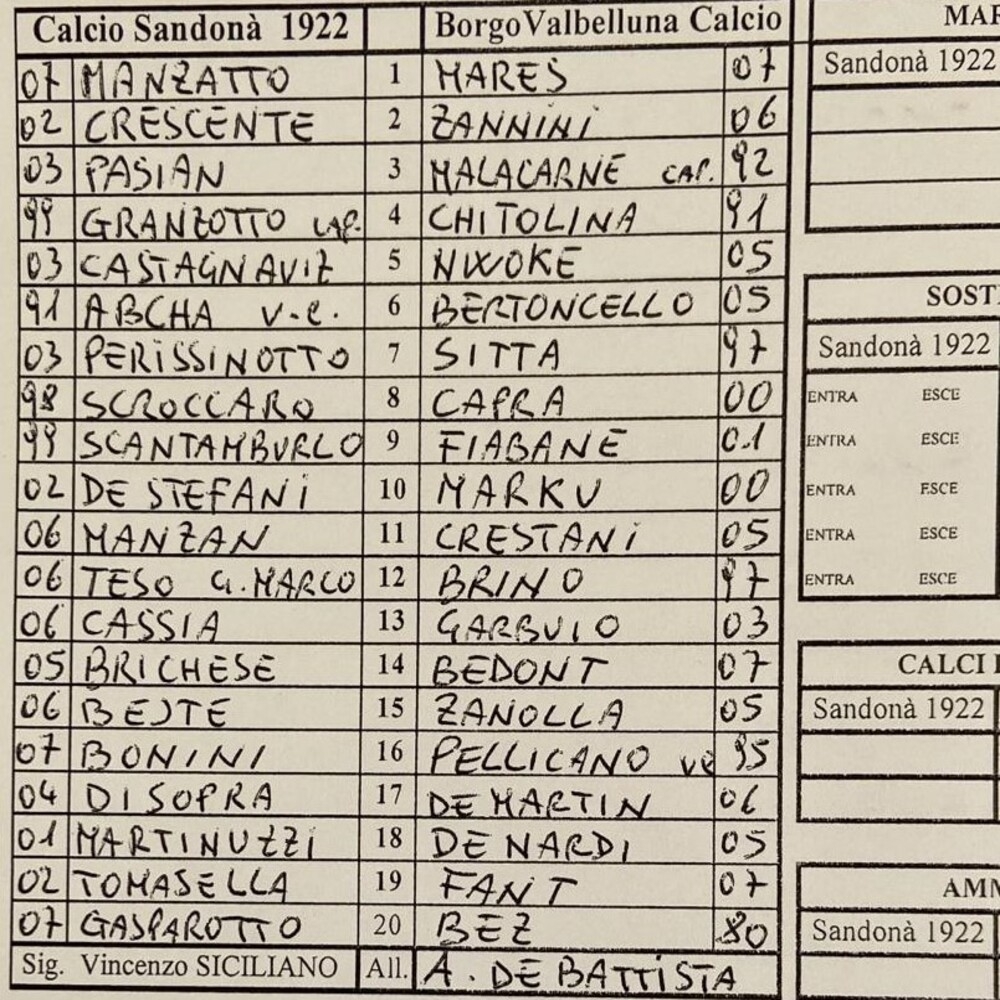 Calcio Sandonà 1922 BorgoValbelluna Calcio
07 MANZATTO 1 MARES 07 Sandonà 1922
02 CRESCENTE 2 ZANNINI 06
03 PASIAN 3 MALACARNE CAP. 92
99 GRANZOTTO CAP. 4 CHITOLINA 91
03 CASTAGNAVIZ 5 NWOKE 05
91 ABCHA V.C. 6 BERTONCELLO 05
03 PERISSINOTTO 7 SITTA 97 Sandonà 1922
98 SCROCCARO 8 CAPRA 00 ENTRA ESCE
99 SCANTAMBURLO 9 FIABANE 01 ENTRA ESCE
02 DE STEFANI 10 MARKU 00 ENTRA ESCE
06 MANZAN 11 CRESTANI 05 ENTRA ESCE
06 TESO G.MARCO 12 BRINO 97 ENTRA ESCE
06 CASSIA 13 GARBUIO 03
05 BRICHESE 14 BEDONT 07 CALCI
06 BEJTE 15 ZANOLLA 05 Sandonà 1922
07 BONINI 16 PELLICANO VC 95
04 DISOPRA 17 DE MARTIN 06
01 MARTINUZZI 18 DE NARDI 05
02 TOMASELLA 19 FANT 07
07 GASPAROTTO 20 BEZ 80 Sandonà 1922
Sig. Vincenzo SICILIANO All. A. DE BATTISTA